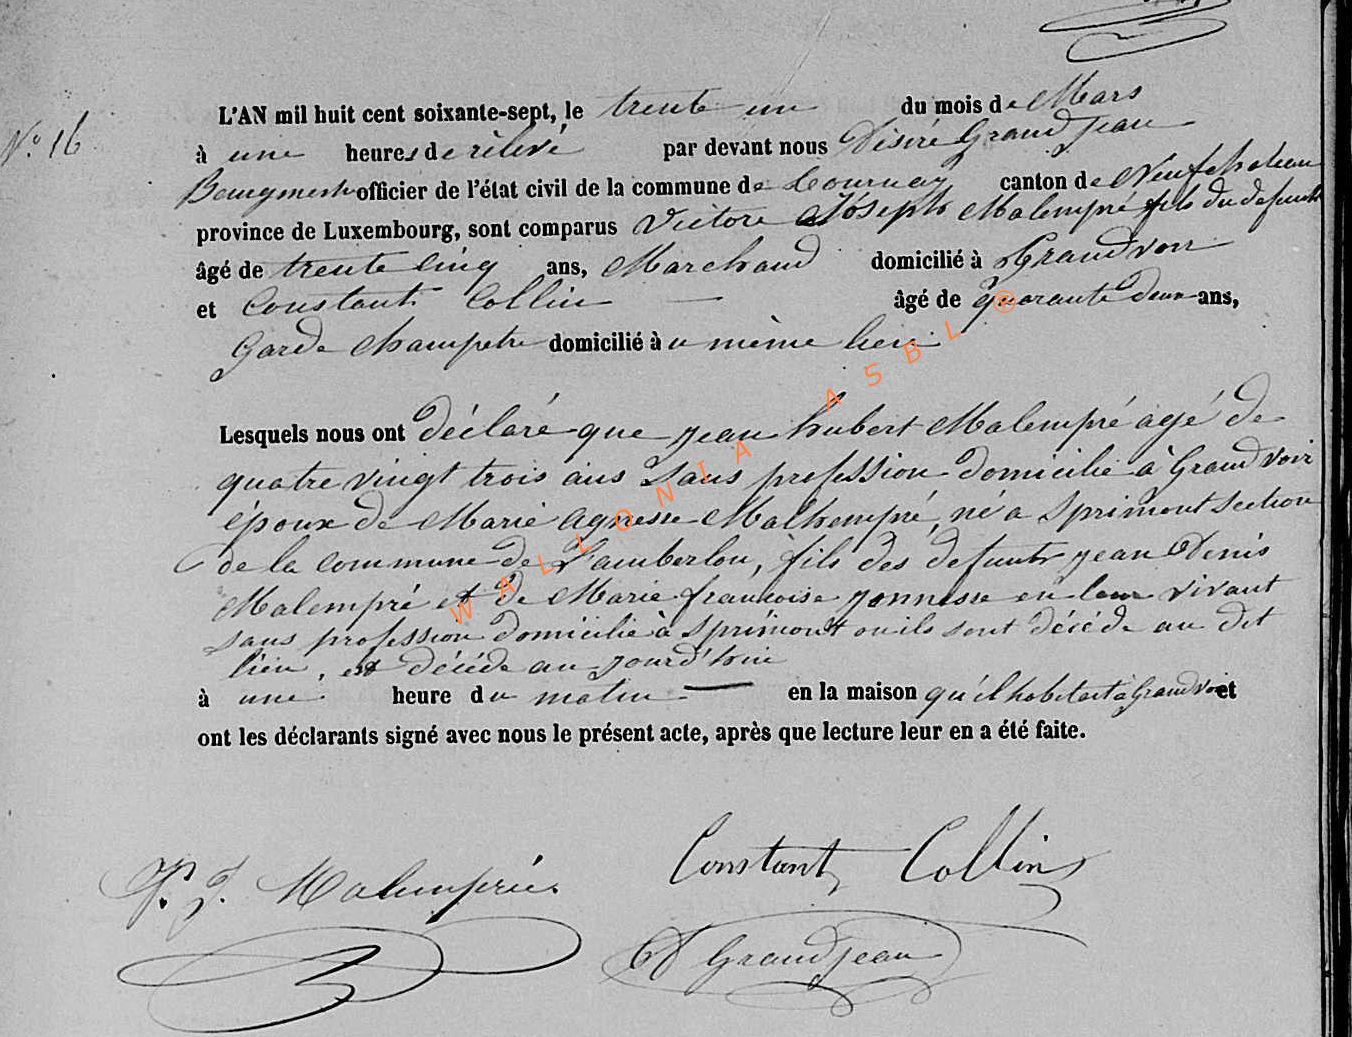 N.° 16
L'AN mil huit cent soixante-sept, le trente un du mois de Mars
à une heures de rélevé par devant nous Désiré Grandjean
Bourgmestre officier de l'état civil de la commune de Tournay canton de Neufchateau
province de Luxembourg, sont comparus Victore Joseph Malempré fils du defunt
âgé de trente cinq ans, Marchand domicilié à Grandvoir
et Constant Collin âgé de quarante deux ans,
Garde Champetre domicilié à u même lieu
Lesquels nous ont déclaré que jean hubert Malempré agé de
quatre vingt trois ans Sans profession domicilié à Grandvoir
époux de Marie Agnesse Malhempré, né a Sprimont section
de la commune de Tamberlou, fils des defunts jean Denis
Malempré et de Marie francoise jonnesse en leur vivant
sans profession domicilié à Sprimont ou ils sont décédé au dit
lieu, est décédé aujourd'hui
à une heure du matin en la maison qu'il habitait a Grandvoir et
ont les déclarants signé avec nous le présent acte, après que lecture leur en a été faite.
V. J. Malempré Constant Collin
D Grandjean
WALLONIA ASBL ®